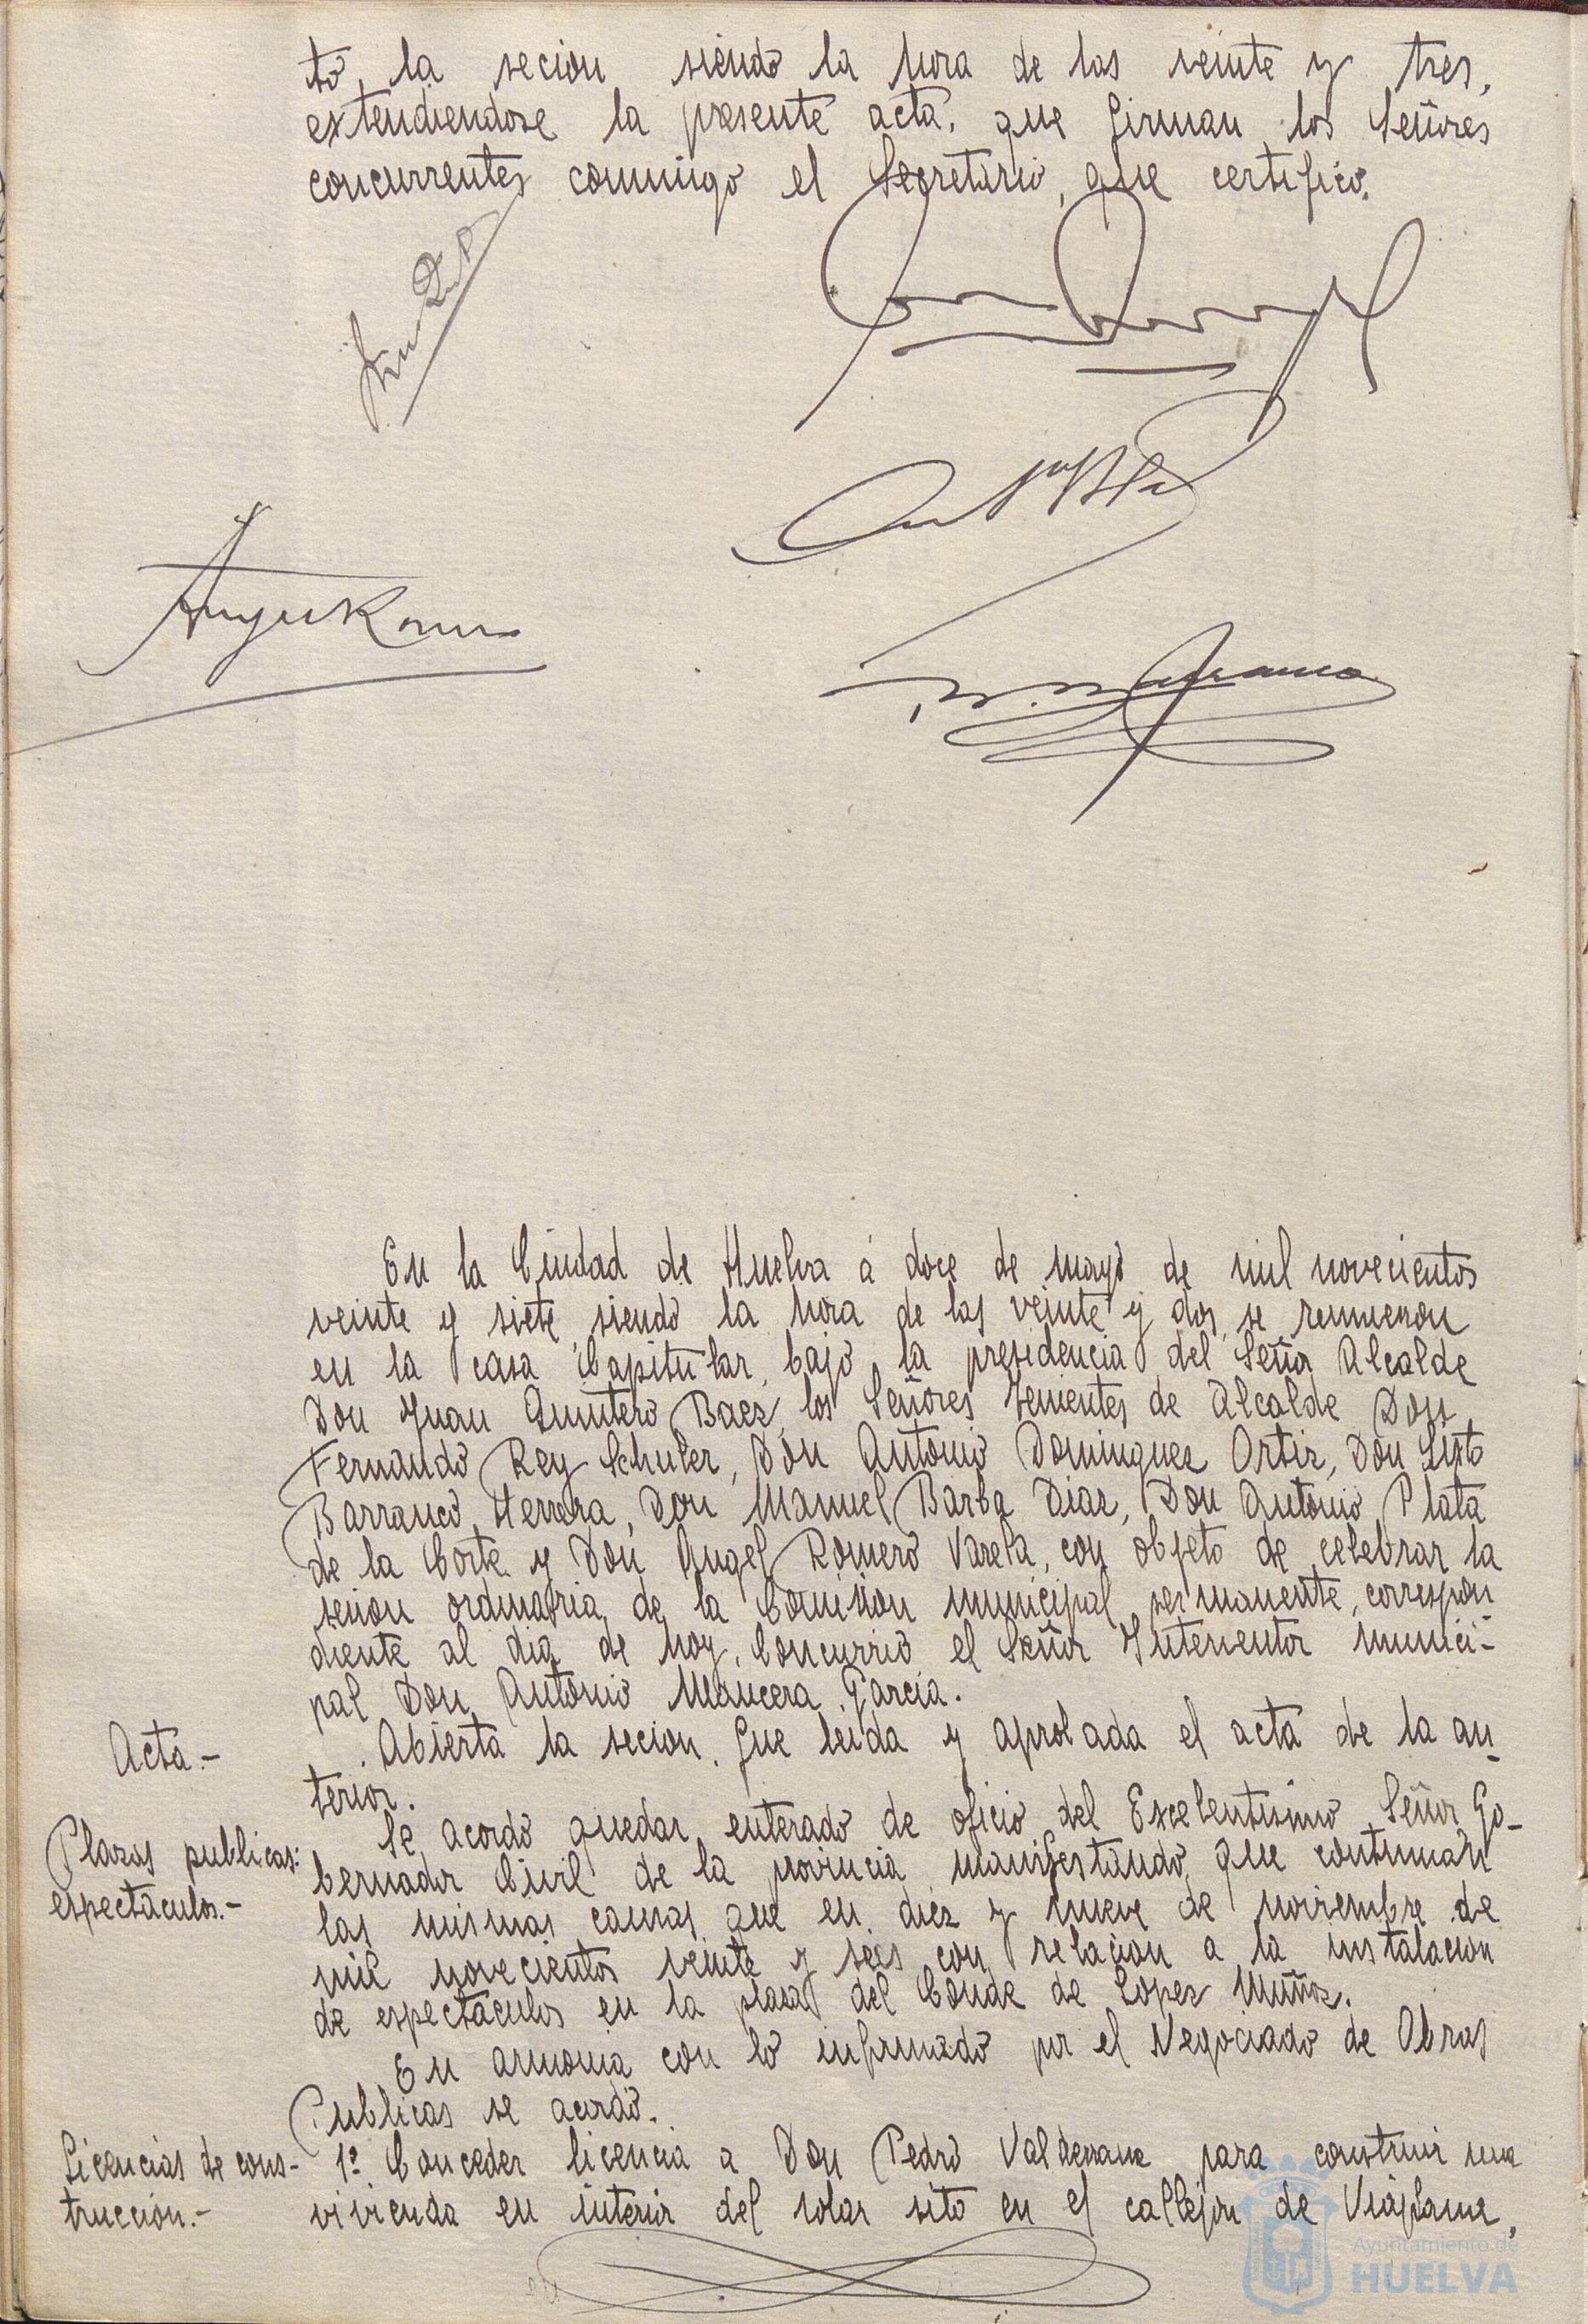 tó, la secion siendo la hora de las veinte y tres,
extendiendose la presente acta, que firman los Señores
concurrentes conmigo el Secretario, que certifico.
En la Ciudad de Huelva á doce de mayo de mil novecientos
veinte y siete, siendo la hora de las veinte y dos, se reunieron
en la casa Capitular, bajo la presidencia del Señor Alcalde
Don Juan Quintero Baez, los Señores Tenientes de Alcalde Don
Fernando Rey Schuler, Don Antonio Dominguez Ortiz, Don Sixto
Barranco Herrera, Don Manuel Barba Diaz, Don Antonio Plata
de la Corte y Don Angel Romero Varela, con objeto de celebrar la
sesion ordinaria de la Comision municipal permanente, correspon
diente al dia de hoy. Concurrió el Señor Interventor munici-
pal Don Antonio Mancera Garcia.
Acta.-
Abierta la secion, fue leida y aprobada el acta de la an-
terior.
Plazas publicas:
espectaculos.-
Se acordó quedar enterado de oficio del Excelentisimo Señor Go-
bernador Civil de la provincia manifestando, que continuan
las mismas causas que en diez y nueve de noviembre de
mil novecientos veinte y seis con relacion a la instalacion
de espectaculos en la plaza del Conde de Lopez Muñoz.
En armonia con lo informado por el Negociado de Obras
Publicas se acordó.
Licencias de cons-
trucción.-
1º Conceder licencia a Don Pedro para construir una
vivienda en interior del solar sito en el callejon de
Ayuntamiento de
HUELVA